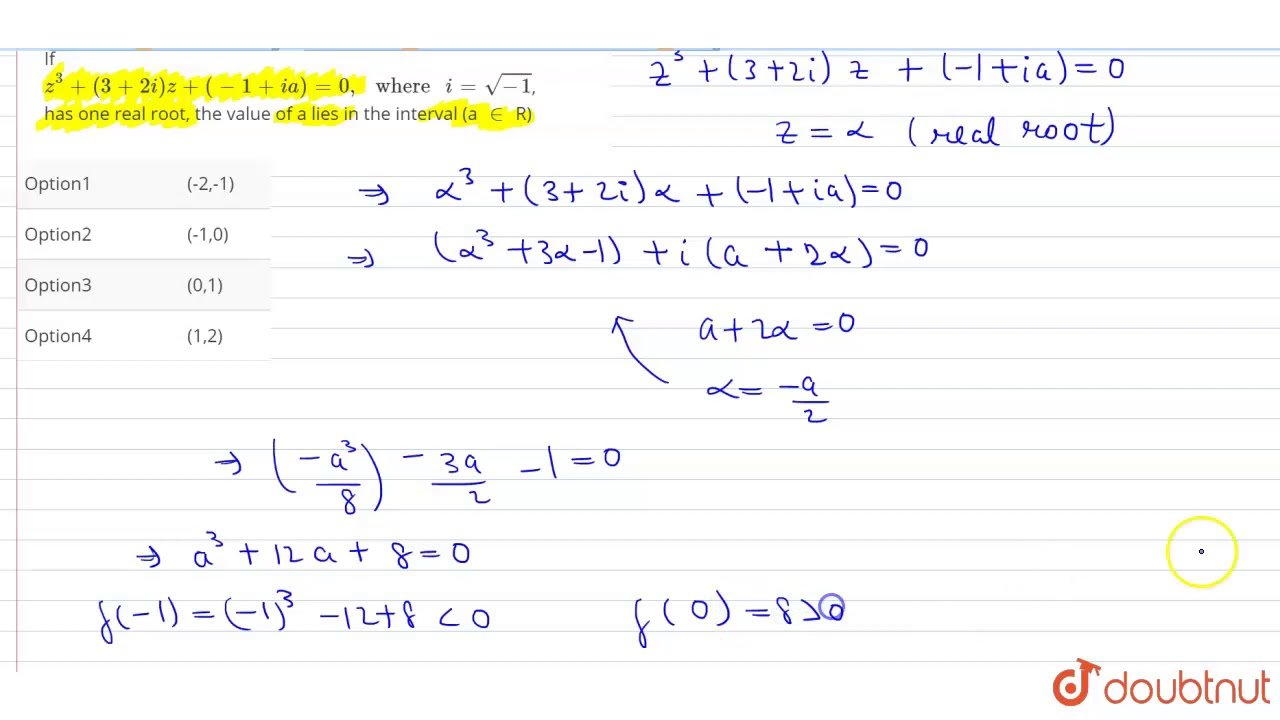 If
z³ + (3 + 2i)z + ( − 1 + ia) = 0, where i = √−1,
has one real root, the value of a lies in the interval (a ∈ R)
Option1 (-2,-1)
Option2 (-1,0)
Option3 (0,1)
Option4 (1,2)
z³ + (3+2i) z + (-1+ia) = 0
z = α (real root)
⇒ α³ + (3+2i)α + (-1+ia) = 0
⇒ (α³ +3α-1) + i (a + 2α) = 0
a + 2α = 0
α = -a/2
⇒ (-a³/8) - 3a/2 - 1 = 0
⇒ a³ + 12a + 8 = 0
f(-1) = (-1)³ - 12+8 < 0 f(0) = 8 > 0
doubtnut